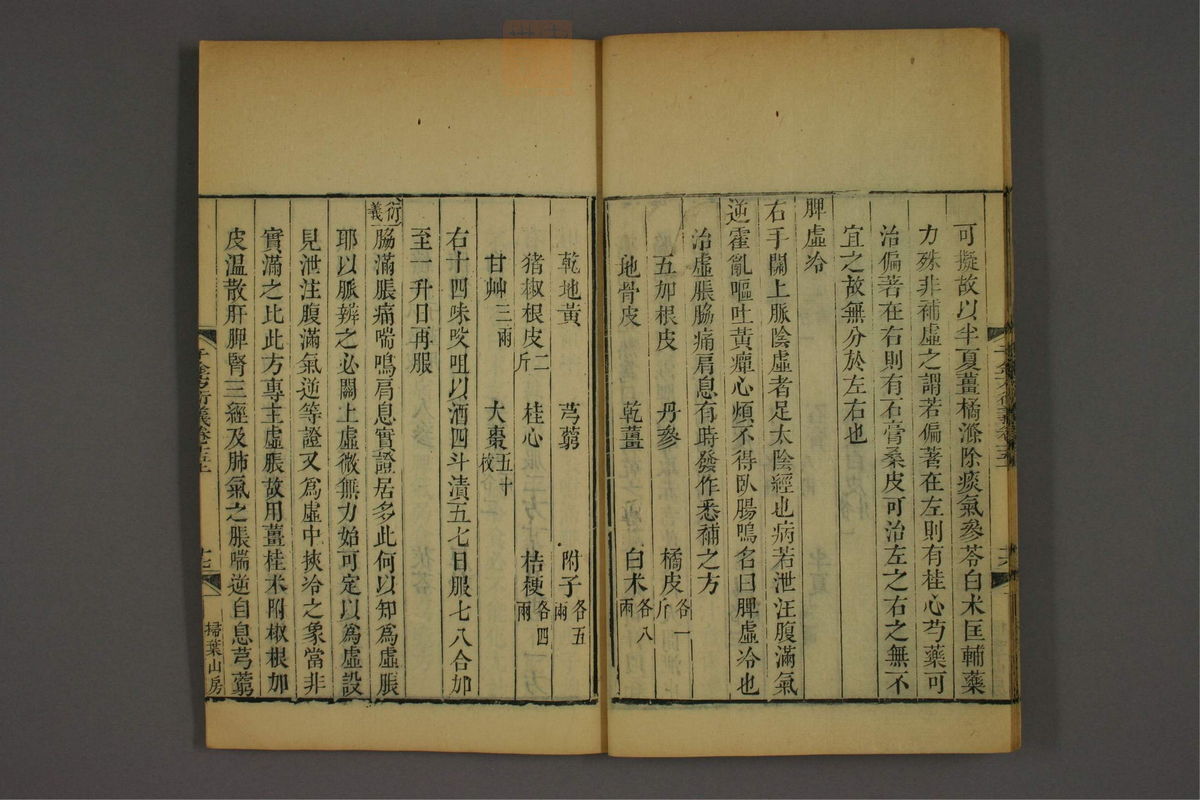 可擬故以半夏薑橘滌除痰氣參苓白朮匡輔藥
力殊非補虛之謂若偏著在左則有桂心芍藥可
治偏著在右則有石膏桑皮可治左之右之無不
宜之故無分於左右也
脾虛冷
右手關上脈陰虛者足太陰經也病若泄注腹滿氣
逆霍亂嘔吐黃癉心煩不得臥腸鳴名曰脾虛冷也
治虛脹脇痛肩息有時發作悉補之方
五加根皮 丹參 橘皮各一斤
地骨皮 乾薑 白朮各八兩
乾地黃 芎藭 附子各五兩
猪椒根皮二斤 桂心 桔梗各四兩
甘艸三兩 大棗五十枚
右十四味㕮咀以酒四斗漬五七日服七八合加
至一升日再服
衍義 脇滿脹痛喘鳴肩息實證居多此何以知爲虛脹
耶以脈辨之必關上虛微無力始可定以爲虛設
見泄注腹滿氣逆等證又爲虛中挾冷之象當非
實滿之比此方專主虛脹故用薑桂朮附椒根加
皮溫散肝脾腎三經及肺氣之脹喘逆自息芎藭
掃葉山房